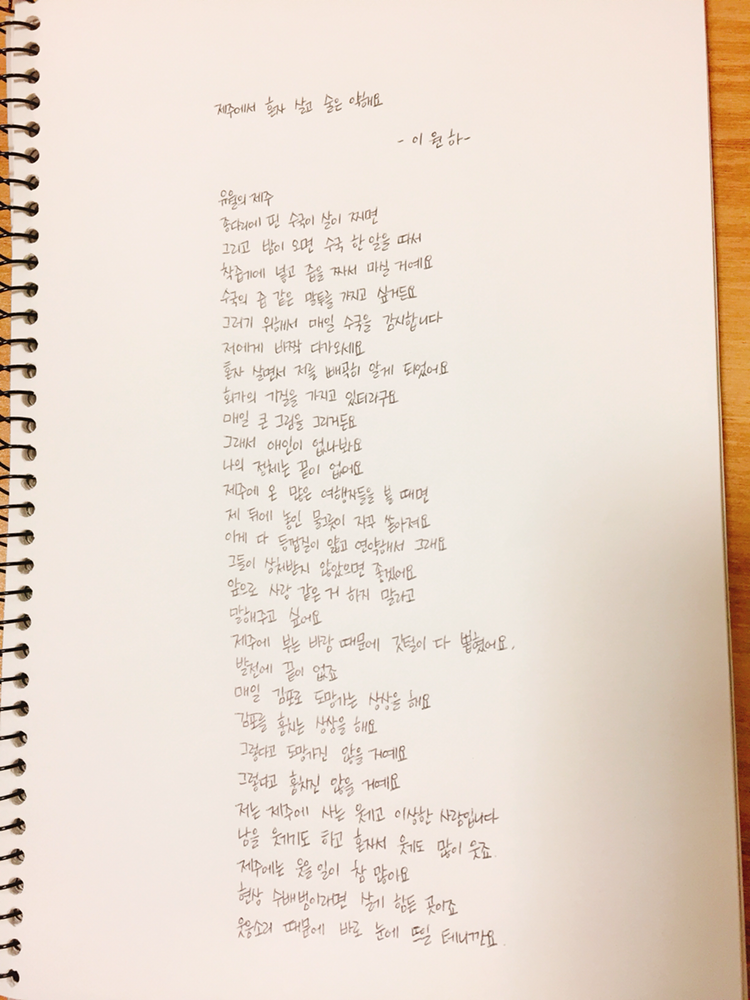 제주에서 혼자 살고 술은 약해요
- 이원하 -
유월의 제주
종다리에 핀 수국이 살이 찌면
그리고 밤이 오면 수국 한 알을 따서
착즙기에 넣고 즙을 짜서 마실 거예요
수국의 즙 같은 말투를 가지고 싶거든요
그러기 위해서 매일 수국을 감시합니다
저에게 바짝 다가오세요
혼자 살면서 저를 빼곡히 알게 되었어요
화가의 기질을 가지고 있더라구요
매일 큰 그림을 그리거든요
그래서 애인이 없나봐요
나의 정체는 끝이 없어요
제주에 온 많은 여행자들을 볼 때면
제 뒤에 놓인 물그릇이 자꾸 쏟아져요
이게 다 등껍질이 얇고 연약해서 그래요
그들이 상처받지 않았으면 좋겠어요
앞으로 사랑 같은 거 하지 말라고
말해주고 싶어요
제주에 부는 바람 때문에 깃털이 다 뽑혔어요.
발전에 끝이 없죠
매일 김포로 도망가는 상상을 해요
김포를 훔치는 상상을 해요
그렇다고 도망가진 않을 거예요
그렇다고 훔치진 않을 거예요
저는 제주에 사는 웃기고 이상한 사람입니다
남을 웃기기도 하고 혼자서 웃기도 많이 웃죠.
제주에는 웃을 일이 참 많아요
현상 수배범이라면 살기 힘든 곳이죠
웃음소리 때문에 바로 눈에 띄일 테니깐요.